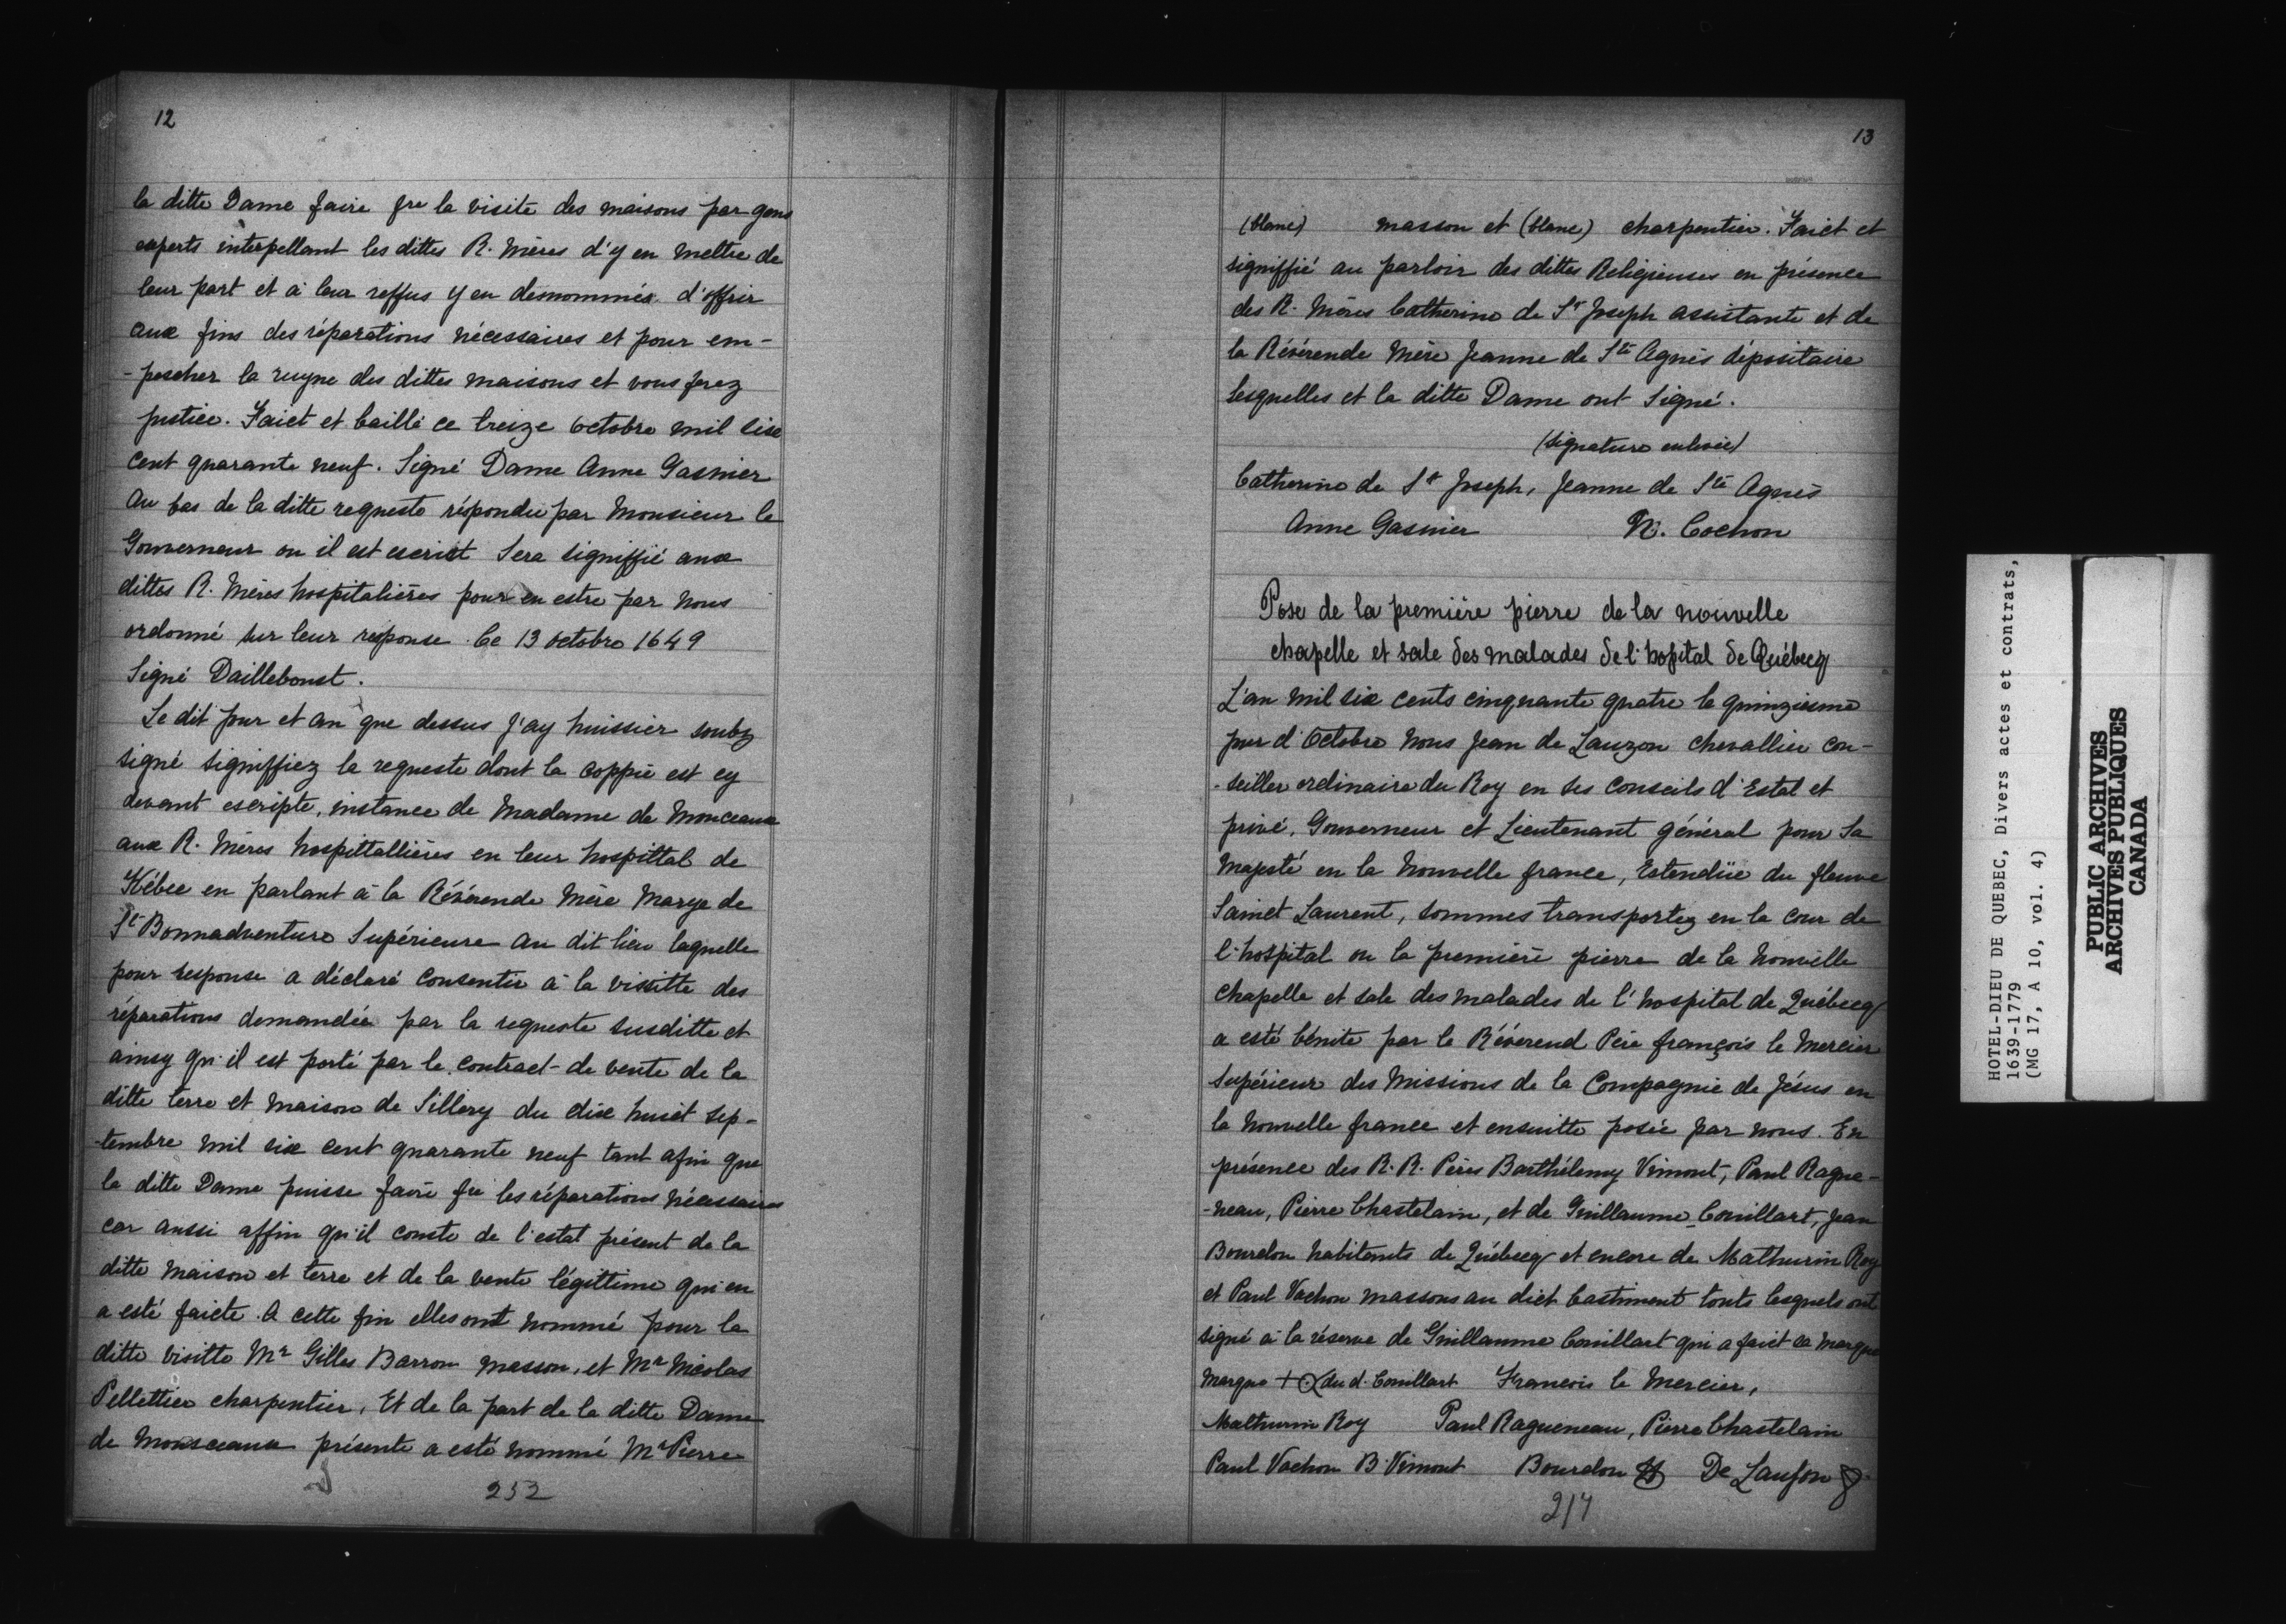 12
la ditte Dame faire fre la visite des maisons par gens
experts interpellant les dittes R. Mères d'y en mettre de
leur part et à leur reffus y en denommés. d'offrir
aux fins des réparations nécessaires et pour em-
-pescher la ruyne des dittes maisons et vous ferez
justice. Faict et baillé ce treize octobre mil six
cent quarante neuf. Signé Dame Anne Gasnier
Au bas de la ditte requeste répondu par Monsieur le
Gouverneur ou il est escript Sera signiffié aux
dittes R. Mères hospitalières pour en estre par nous
ordonné sur leur response. Ce 13 octobre 1649
Signé Daillebout.
Le dit jour et an que dessus j'ay huissier soubz
signé signiffiez la requeste dont la coppie est cy
devant escripte, instance de Madame de Monceaux
aux R. Mères hospittallières en leur hospittal de
Kébec en parlant à la Révérende Mère Marye de
St Bonnadventure Supérieure au dit lieu laquelle
pour response a déclaré consentir à la vissitte des
réparations demandée par la requeste susditte et
ainsy qu'il est porté par le contract de vente de la
ditte terre et maison de Sillery du dix huict sep-
-tembre mil six cent quarante neuf tant afin que
la ditte Dame puisse faire fre les réparations nécessaires
car aussi affin qu'il conste de l'estat présent de la
ditte maison et terre et de la vente légittime qui en
a esté faicte. A cette fin elles ont nommé pour la
ditte visitte Mr Gilles Barron masson, et Mr Nicolas
Pellettier charpentier, Et de la part de la ditte Dame
de Monsceaux présente a esté nommé Mr Pierre
252
13
(blanc) masson et (blanc) charpentier. Faict et
signiffié au parloir des dittes Religieuses en présence
des R. Mères Catherine de St Joseph assistante et de
la Révérende Mère Jeanne de Ste Agnès dépositaire
lesquelles et la ditte Dame ont Signé.
(signature enlevée)
Catherine de St Joseph, Jeanne de Ste Agnès
Anne Gasnier N. Cochon
Pose de la première pierre de la nouvelle
chapelle et sale des malades de l'hopital de Québecq
L'an mil six cents cinquante quatre le quinziesme
jour d'Octobre Nous Jean de Lauzon chevallier con-
-seiller ordinaire du Roy en ses conseils d'Estat et
privé, Gouverneur et Lieutenant général pour Sa
Majesté en la Nouvelle france, Estendüe du fleuve
Sainct Laurent, sommes transportez en la cour de
l'hospital ou la première pierre de la nouvelle
chapelle et sale des malades de l'hospital de Québecq
a esté bénite par le Révérend Père françois le Mercier
supérieur des Missions de la Compagnie de Jésus en
la Nouvelle france et ensuitte posée par nous. En
présence des R.R. Pères Barthélemy Vimont, Paul Rague-
-neau, Pierre Chastelain, et de Guillaume Couillart, Jean
Bourdon habitants de Québecq et encore de Mathurin Roy
et Paul Vachon massons au dict bastiment touts lesquels ont
signé à la réserve de Guillaume Couillart qui a faict sa marque
Marque + du d. Couillart Francois le Mercier,
Mathurin Roy Paul Ragueneau, Pierre Chastelain
Paul Vachon B Vimont Bourdon De Lauson
217
HOTEL-DIEU DE QUEBEC, Divers actes et contrats,
1639-1779
(MG 17, A 10, vol. 4)
PUBLIC ARCHIVES
ARCHIVES PUBLIQUES
CANADA